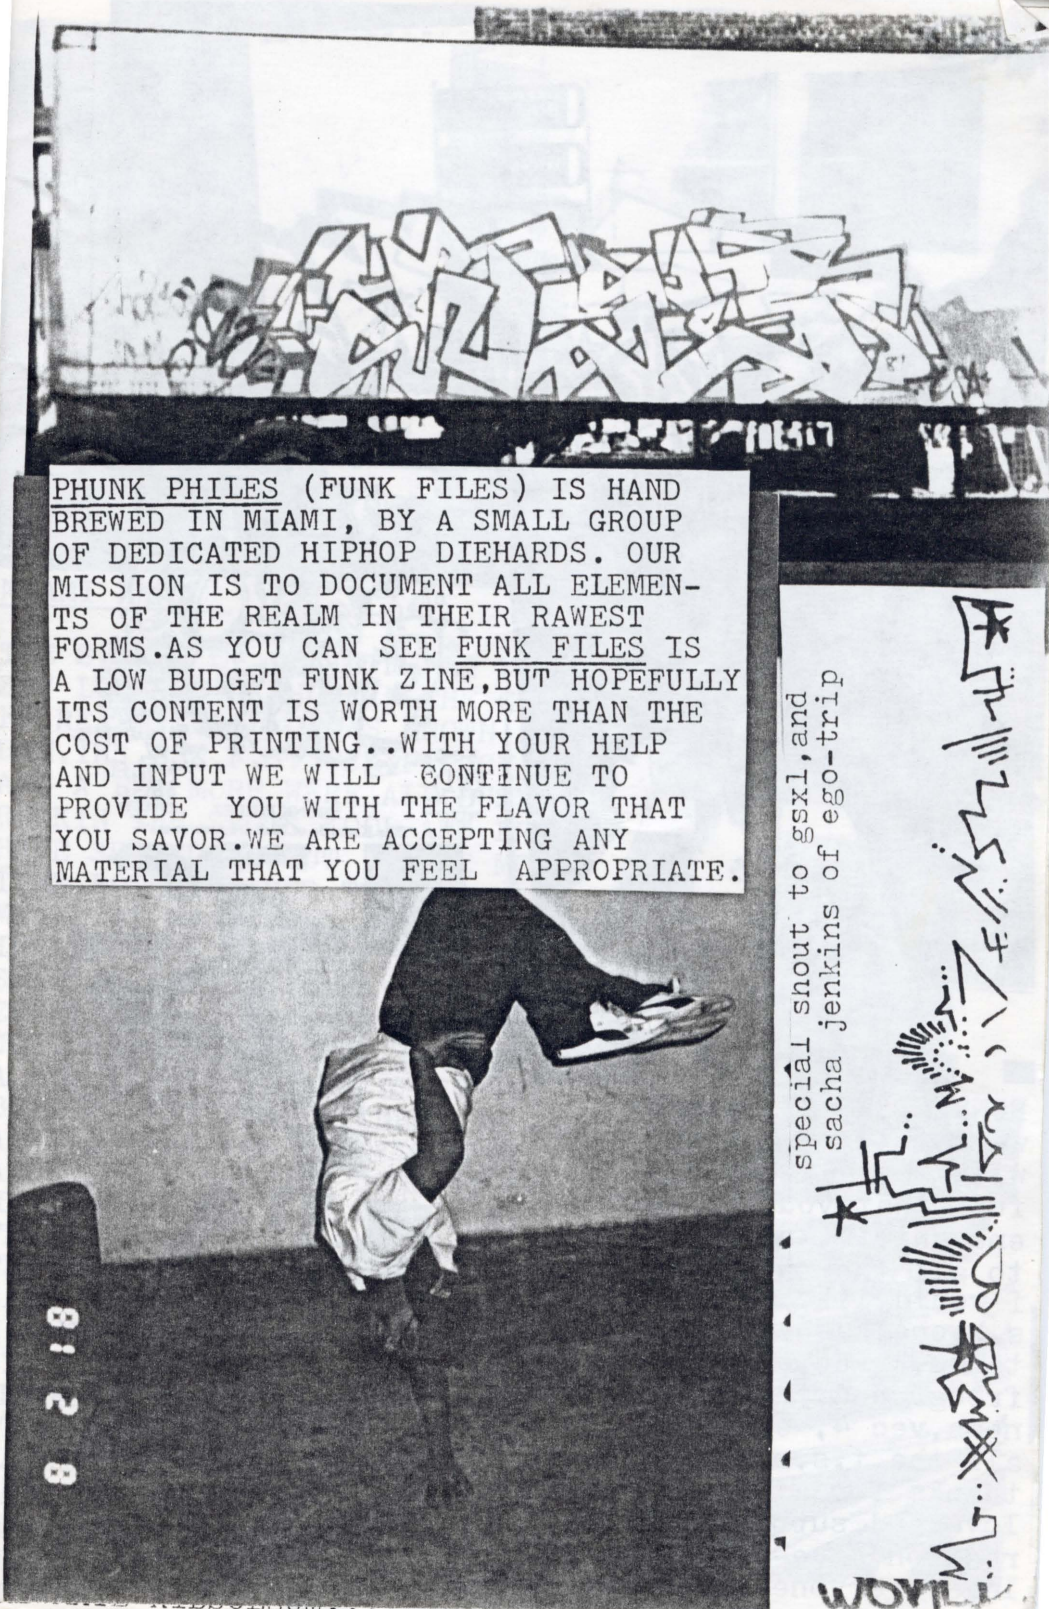 PHUNK PHILES (FUNK FILES) IS HAND
BREWED IN MIAMI, BY A SMALL GROUP
OF DEDICATED HIPHOP DIEHARDS. OUR
MISSION IS TO DOCUMENT ALL ELEMEN-
TS OF THE REALM IN THEIR RAWEST
FORMS.AS YOU CAN SEE FUNK FILES IS
A LOW BUDGET FUNK ZINE,BUT HOPEFULLY
ITS CONTENT IS WORTH MORE THAN THE
COST OF PRINTING..WITH YOUR HELP
AND INPUT WE WILL CONTINUE TO
PROVIDE YOU WITH THE FLAVOR THAT
YOU SAVOR.WE ARE ACCEPTING ANY
MATERIAL THAT YOU FEEL APPROPRIATE.
special shout to gsxl,and
sacha jenkins of ego-trip
8 2 18